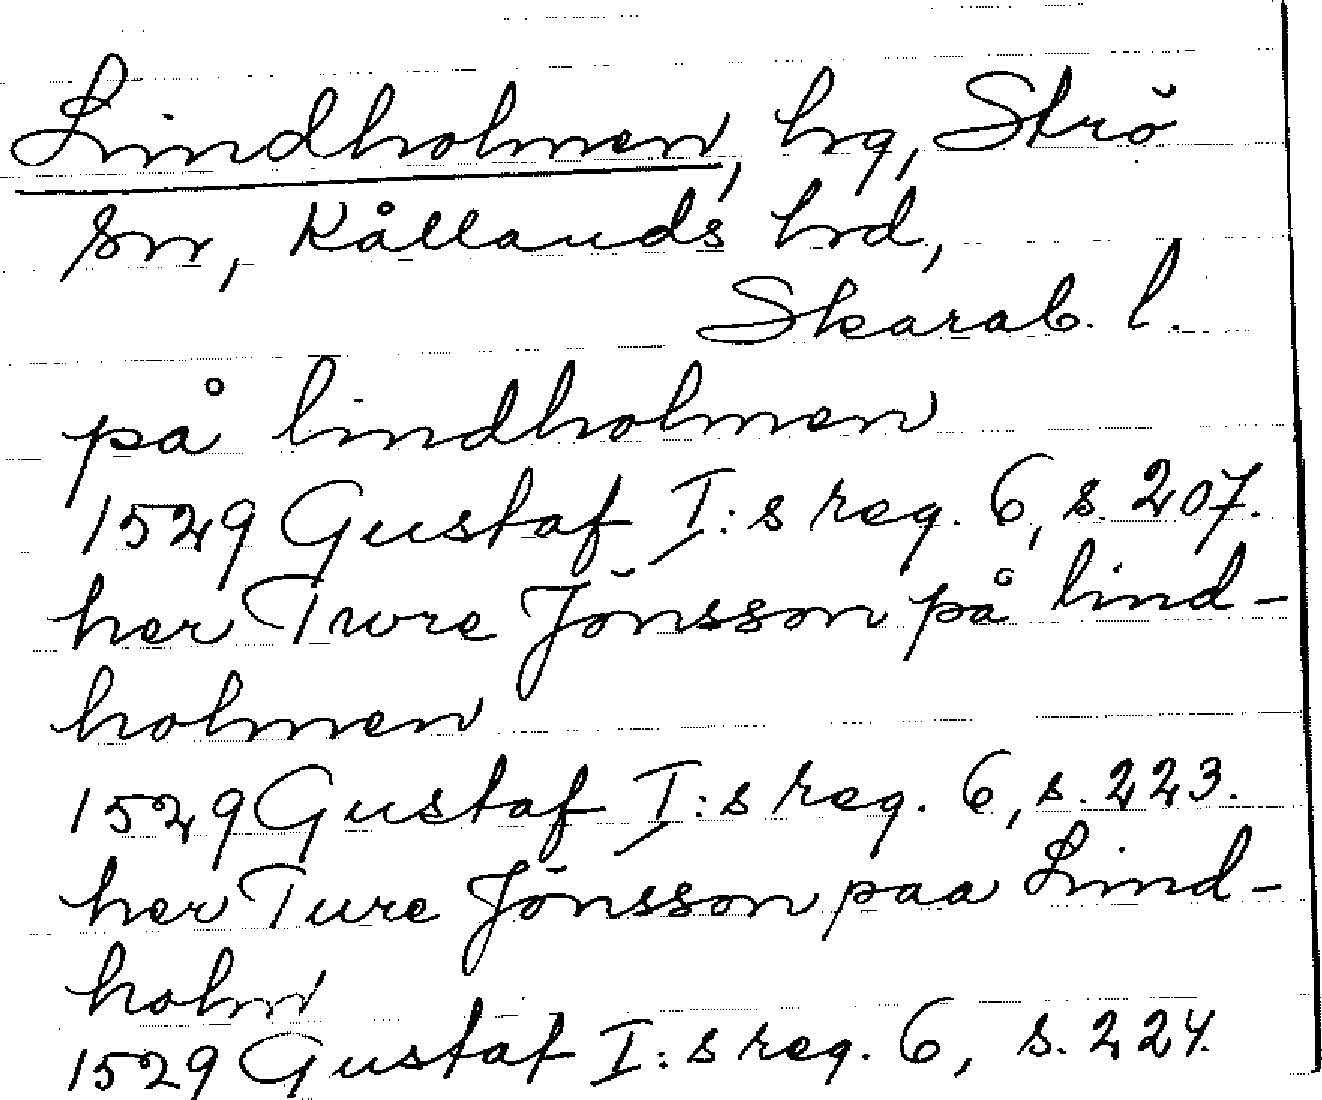 Lindholmen, hrg, Strö
sn, Kållands hrd,
Skarab. l.
på lindholmen
1529 Gustaf I:s reg. 6, s. 207.
her Twre Jönsson på lind-
holmen
1529 Gustaf I:s reg. 6, s. 223.
her Ture Jönsson paa Lind-
holm
1529 Gustaf I:s reg. 6, s. 224.